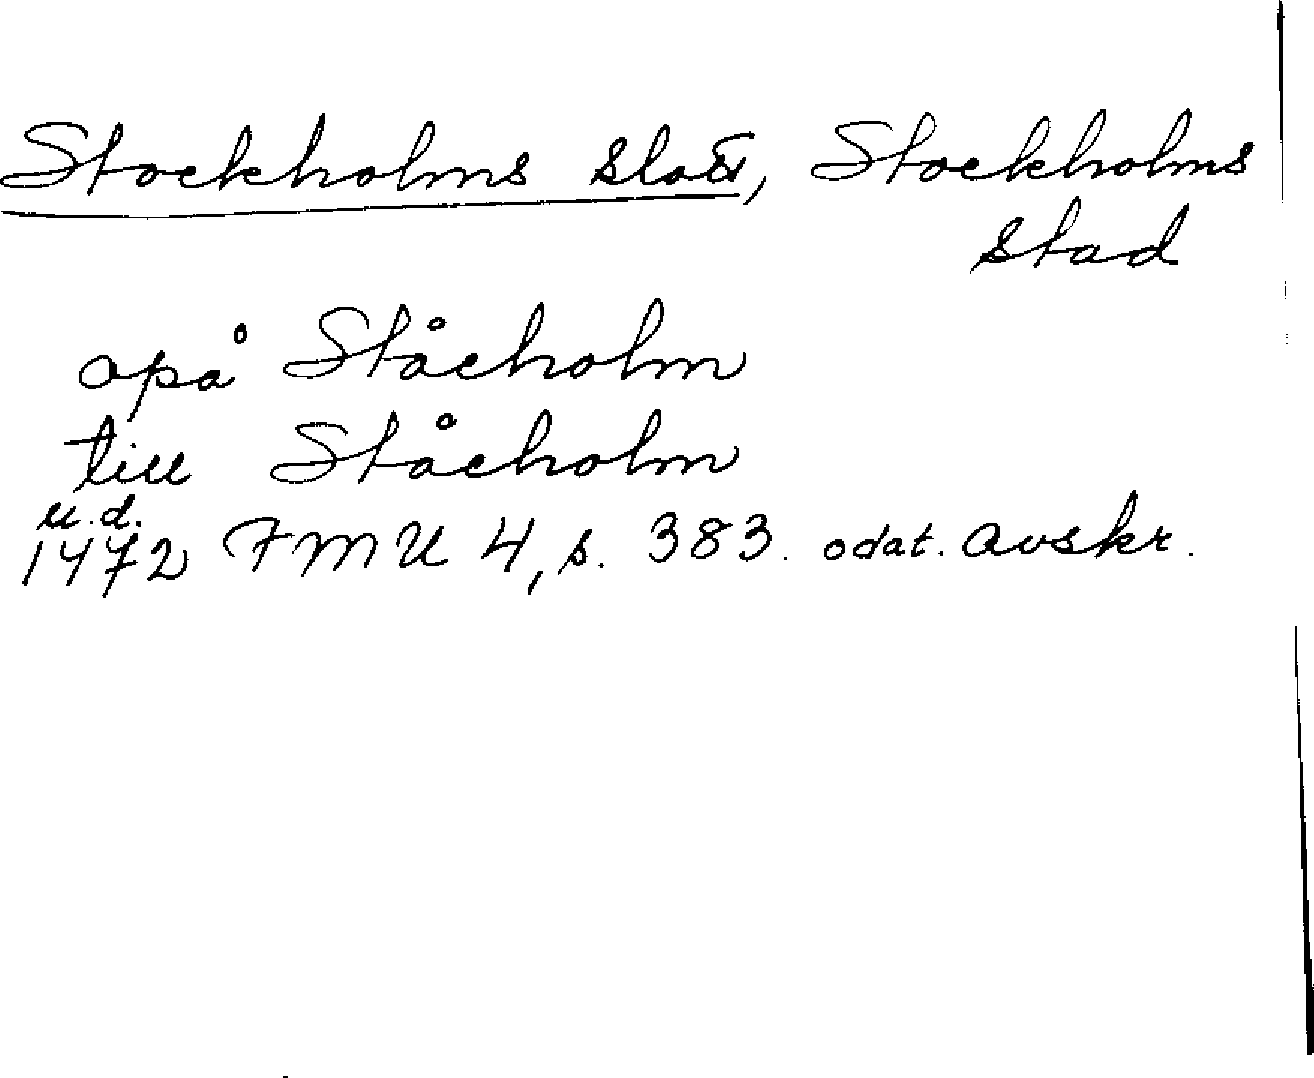 Stockholms slott, Stockholms
stad
opå Ståcholm
till Ståcholm
u.d.
1472 FMU 4, s. 383. odat. avskr.